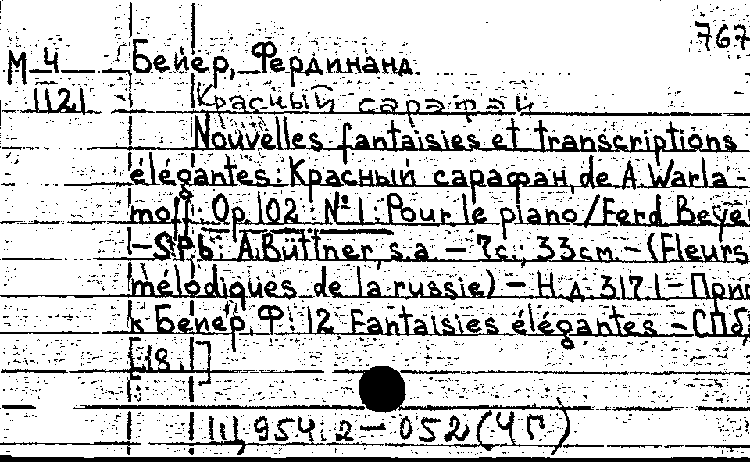 767
М 4 Бейер, Фердинанд.
1121 Красный сарафан
Nouvelles fantaisies et transcriptions
élégantes: Красный сарафан de A. Warla-
moff. Op. 102: № 1: Pour le piano / Ferd Beye
- SPb: A. Büttner, s. a. - 7с.; 33см. - (Fleurs
mélodiques de la russie) - Н. д. 3171 - При
к Бейер, Ф. 12 Fantaisies élégantes - СПб,
[18. ]
Щ 954.2-052 (4 Г)